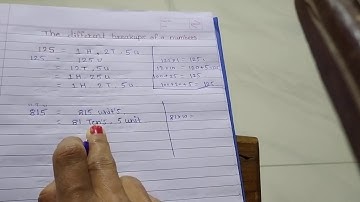 The different breakups of a numbers
125 = 1H, 2T, 5U
125 = 125U
= 12T, 5U
= 1H, 25U
= 1H, 2T, 5U
125×1 = 125
12×10 = 120+5
100+25 = 125
= 125
815 = 815 unit's
= 81 Ten's, 5 unit
81×10 =